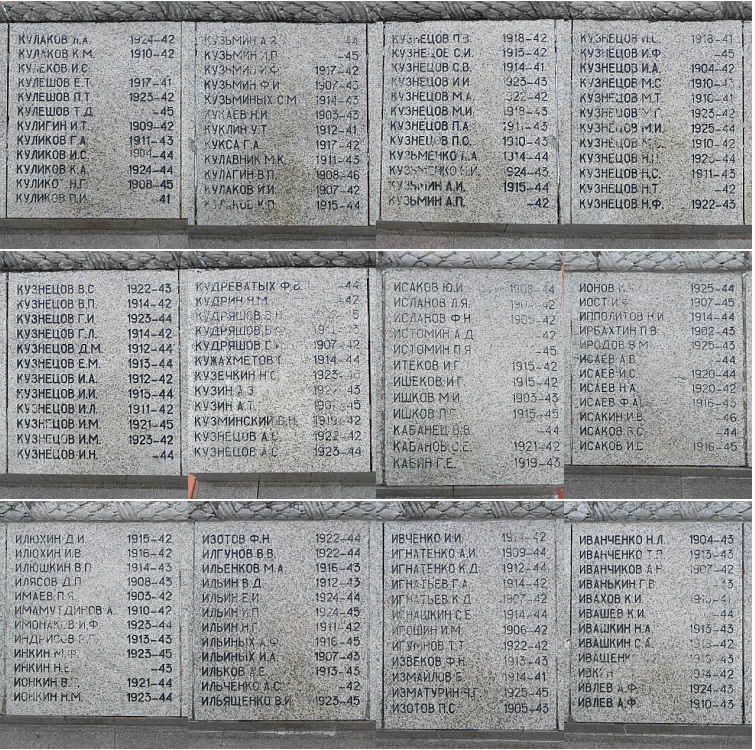 КУЛАКОВ Л.А. 1924-42
КУЛАКОВ К.М. 1910-42
КУЛЕКОВ И.С.
КУЛЕШОВ Е.Т. 1917-41
КУЛЕШОВ П.Т. 1923-42
КУЛЕШОВ Т.Д. -45
КУЛИГИН И.Т. 1909-42
КУЛИКОВ Г.А. 1911-43
КУЛИКОВ И.С. 1904-44
КУЛИКОВ К.А. 1924-44
КУЛИКОВ Н.Г. 1908-45
КУЛИКОВ П.И. -41
КУЗЬМИН А.З. -44
КУЗЬМИН И.П. -45
КУЗЬМИН И.Ф. 1917-42
КУЗЬМИН Ф.И. 1907-43
КУЗЬМИНЫХ С.М. 1914-43
КУКАЕВ Н.И. 1903-43
КУКЛИН У.Т. 1912-41
КУКСА Г.А. 1917-42
КУЛАВНИК М.К. 1911-43
КУЛАГИН В.П. 1908-46
КУЛАКОВ И.И. 1907-42
КУЛАКОВ К.П. 1915-44
КУЗНЕЦОВ П.В. 1918-42
КУЗНЕЦОВ С.И. 1913-42
КУЗНЕЦОВ С.В. 1914-41
КУЗНЕЦОВ И.И. 1923-43
КУЗНЕЦОВ М.А. 1922-42
КУЗНЕЦОВ М.И. 1918-43
КУЗНЕЦОВ П.А. 1911-43
КУЗНЕЦОВ П.О. 1910-43
КУЗЬМЕНКО 1914-44
КУЗЬМЕНКО 1924-43
КУЗЬМИН А.И. 1915-44
КУЗЬМИН А.П. -42
КУЗНЕЦОВ И.С. 1918-41
КУЗНЕЦОВ И.Ф. -45
КУЗНЕЦОВ И.А. 1904-42
КУЗНЕЦОВ М.С. 1910-43
КУЗНЕЦОВ М.Т. 1910-41
КУЗНЕЦОВ 1923-42
КУЗНЕЦОВ М.И. 1925-44
КУЗНЕЦОВ 1910-42
КУЗНЕЦОВ Н.П. -44
КУЗНЕЦОВ Н.С. 1911-43
КУЗНЕЦОВ Н.Т. -42
КУЗНЕЦОВ Н.Ф. 1922-43
КУЗНЕЦОВ В.С. 1922-43
КУЗНЕЦОВ В.П. 1914-42
КУЗНЕЦОВ Г.И. 1923-44
КУЗНЕЦОВ Г.Л. 1914-42
КУЗНЕЦОВ Д.М. 1912-44
КУЗНЕЦОВ Е.М. 1913-44
КУЗНЕЦОВ И.А. 1912-42
КУЗНЕЦОВ И.И. 1915-44
КУЗНЕЦОВ И.Л. 1911-42
КУЗНЕЦОВ И.М. 1921-45
КУЗНЕЦОВ И.М. 1923-42
КУЗНЕЦОВ И.Н. -44
КУДРЕВАТЫХ Ф.Е. -44
КУДРИН Н.М. -42
КУДРЯШОВ
КУДРЯШОВ
КУДРЯШОВ 1907-42
КУЖАХМЕТОВ Г. 1914-44
КУЗЕЧКИН Н.С.
КУЗИН А.З. -43
КУЗИН А.Т. -45
КУЗМИНСКИЙ В.Н. 1919-42
КУЗНЕЦОВ А.С. 1922-42
КУЗНЕЦОВ А.С. 1923-44
ИСАКОВ Ю.И. 1908-44
ИСЛАНОВ Л.Я. -42
ИСЛАНОВ Ф.Н. 1905-42
ИСТОМИН А.Д. -42
ИСТОМИН П.Я. -45
ИТЕКОВ И.Г. 1915-42
ИШЕКОВ И.Г. 1915-42
ИШКОВ М.И. 1903-43
ИШКОВ П.Г. 1915-45
КАБАНЕЦ В.В. -44
КАБАНОВ С.Е. 1921-42
КАБИН Г.Е. 1919-43
ИОНОВ 1925-44
ИОСТ И.Ф. 1907-45
ИППОЛИТОВ Н.И. 1914-44
ИРБАХТИН П.В. 1902-43
ИРОДОВ В.М. 1925-43
ИСАЕВ А.В. -44
ИСАЕВ И.С. 1920-44
ИСАЕВ Н.А. 1920-42
ИСАЕВ Ф.А. 1916-43
ИСАКИН И.В. -46
ИСАКОВ В.С. -44
ИСАКОВ И.С. 1916-45
ИЛЮХИН Д.И. 1915-42
ИЛЮХИН И.В. 1916-42
ИЛЮШКИН В.П. 1914-43
ИЛЯСОВ Д.П. 1908-43
ИМАЕВ П.Я. 1903-42
ИМАМУТДИНОВ А. 1910-42
ИМОНАКОВ И.Ф. 1923-44
ИНДРИСОВ 1913-43
ИНКИН М.Ф. 1923-45
ИНКИН Н.Е. -43
ИОНКИН В.Г. 1921-44
ИОНКИН Н.М. 1923-44
ИЗОТОВ Ф.Н. 1922-44
ИЛГУНОВ В.В. 1922-44
ИЛЬЕНКОВ М.А. 1916-43
ИЛЬИН В.Д. 1912-43
ИЛЬИН Е.И. 1924-44
ИЛЬИН И.П. 1924-45
ИЛЬИН Н.Г. 1911-42
ИЛЬИНЫХ А.Ф. 1916-45
ИЛЬИНЫХ И.А. 1907-43
ИЛЬКОВ А.Е. 1913-43
ИЛЬЧЕНКО А.С. -42
ИЛЬЯЩЕНКО В.И. 1923-45
ИВЧЕНКО И.И. 1914-42
ИГНАТЕНКО А.И. 1909-44
ИГНАТЕНКО К.Д. 1912-44
ИГНАТЬЕВ Г.А. 1914-42
ИГНАТЬЕВ К.Д. 1907-42
ИГНАШКИН С.Е. 1914-44
ИГОШИН И.М. 1906-42
ИГУМНОВ Т.Т. 1922-42
ИЗВЕКОВ Ф.Н. 1913-43
ИЗМАЙЛОВ Б. 1914-41
ИЗМАТУРИН Ч.Г. 1925-45
ИЗОТОВ П.С. 1905-43
ИВАНЧЕНКО Н.Л. 1904-43
ИВАНЧЕНКО Т.П. 1913-43
ИВАНЧИКОВ А.Н. 1907-42
ИВАНЬКИН Г.В. -43
ИВАХОВ К.И. -41
ИВАШЕВ К.И. -44
ИВАШКИН Н.А. 1913-43
ИВАШКИН С.А. 1913-42
ИВАЩЕНКО
ИВКИН -42
ИВЛЕВ А.Ф. 1924-43
ИВЛЕВ А.Ф. 1910-43